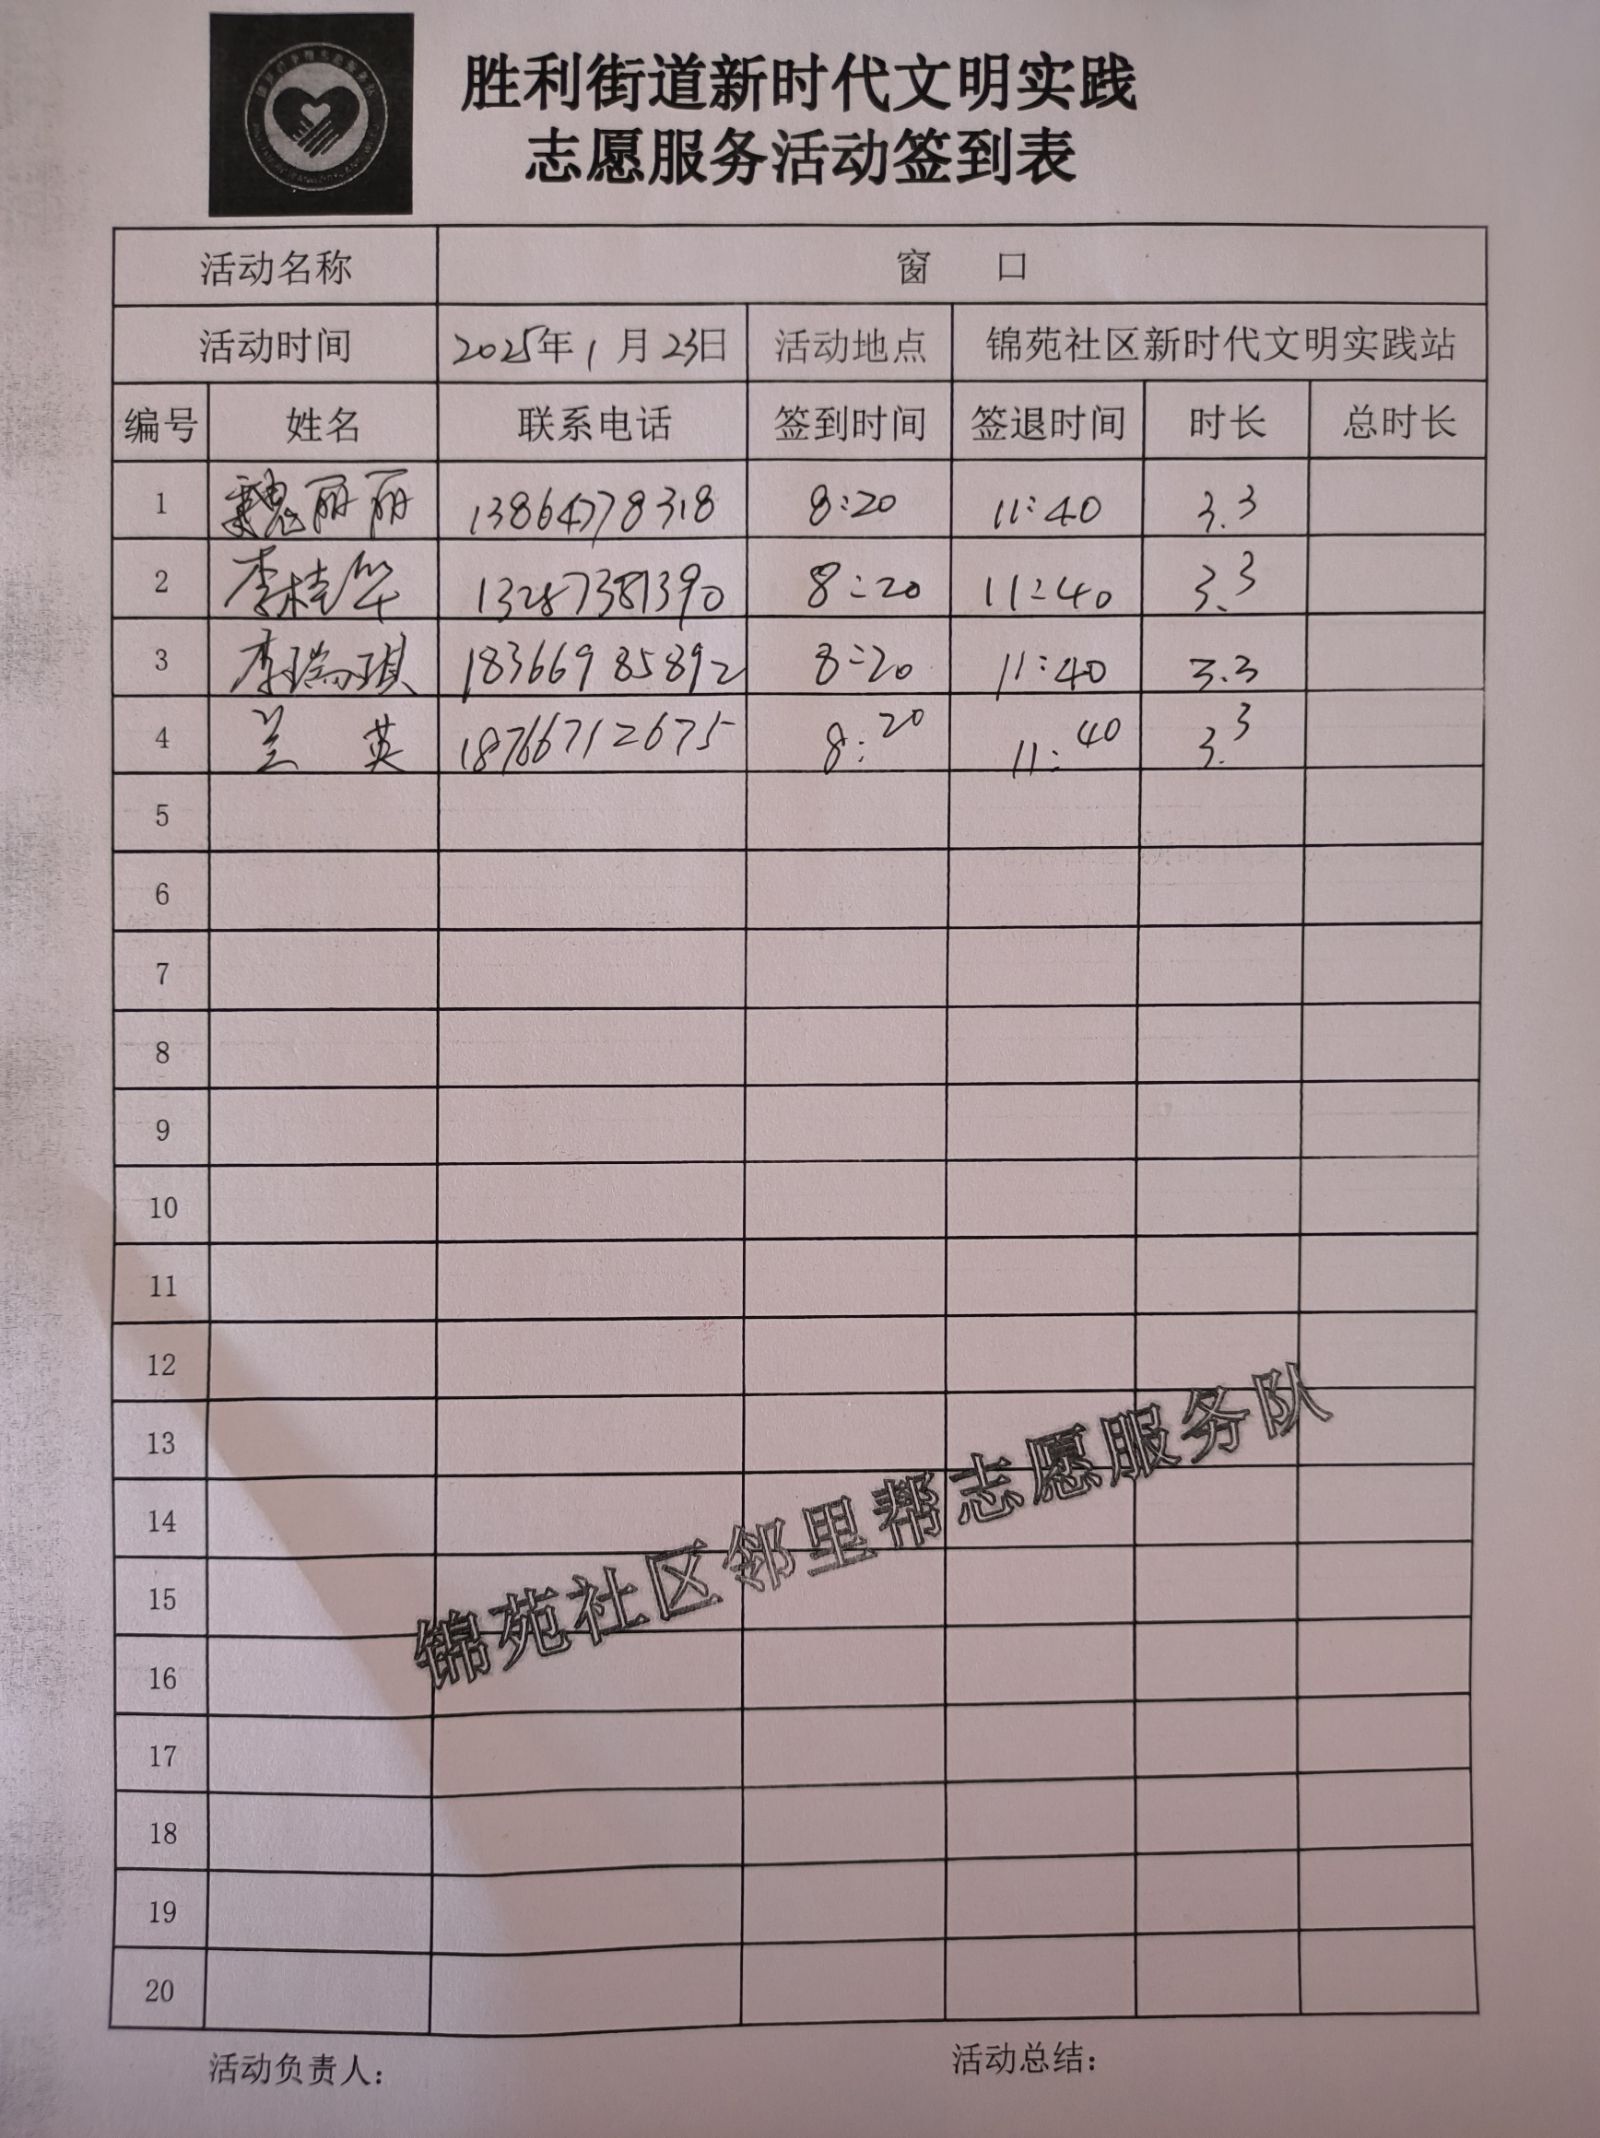 胜利街道新时代文明实践
志愿服务活动签到表
活动名称 窗 口
活动时间 2025年1月23日 活动地点 锦苑社区新时代文明实践站
编号 姓名 联系电话 签到时间 签退时间 时长 总时长
1 魏丽丽 13864778318 8:20 11:40 3.3
2 李桂华 13287381390 8:20 11:40 3.3
3 李瑞琪 18366985892 8:20 11:40 3.3
4 兰英 18766712675 8:20 11:40 3.3
5
6
7
8
9
10
11
12
13
14
15
16
17
18
19
20
锦苑社区邻里帮志愿服务队
活动负责人: 活动总结: